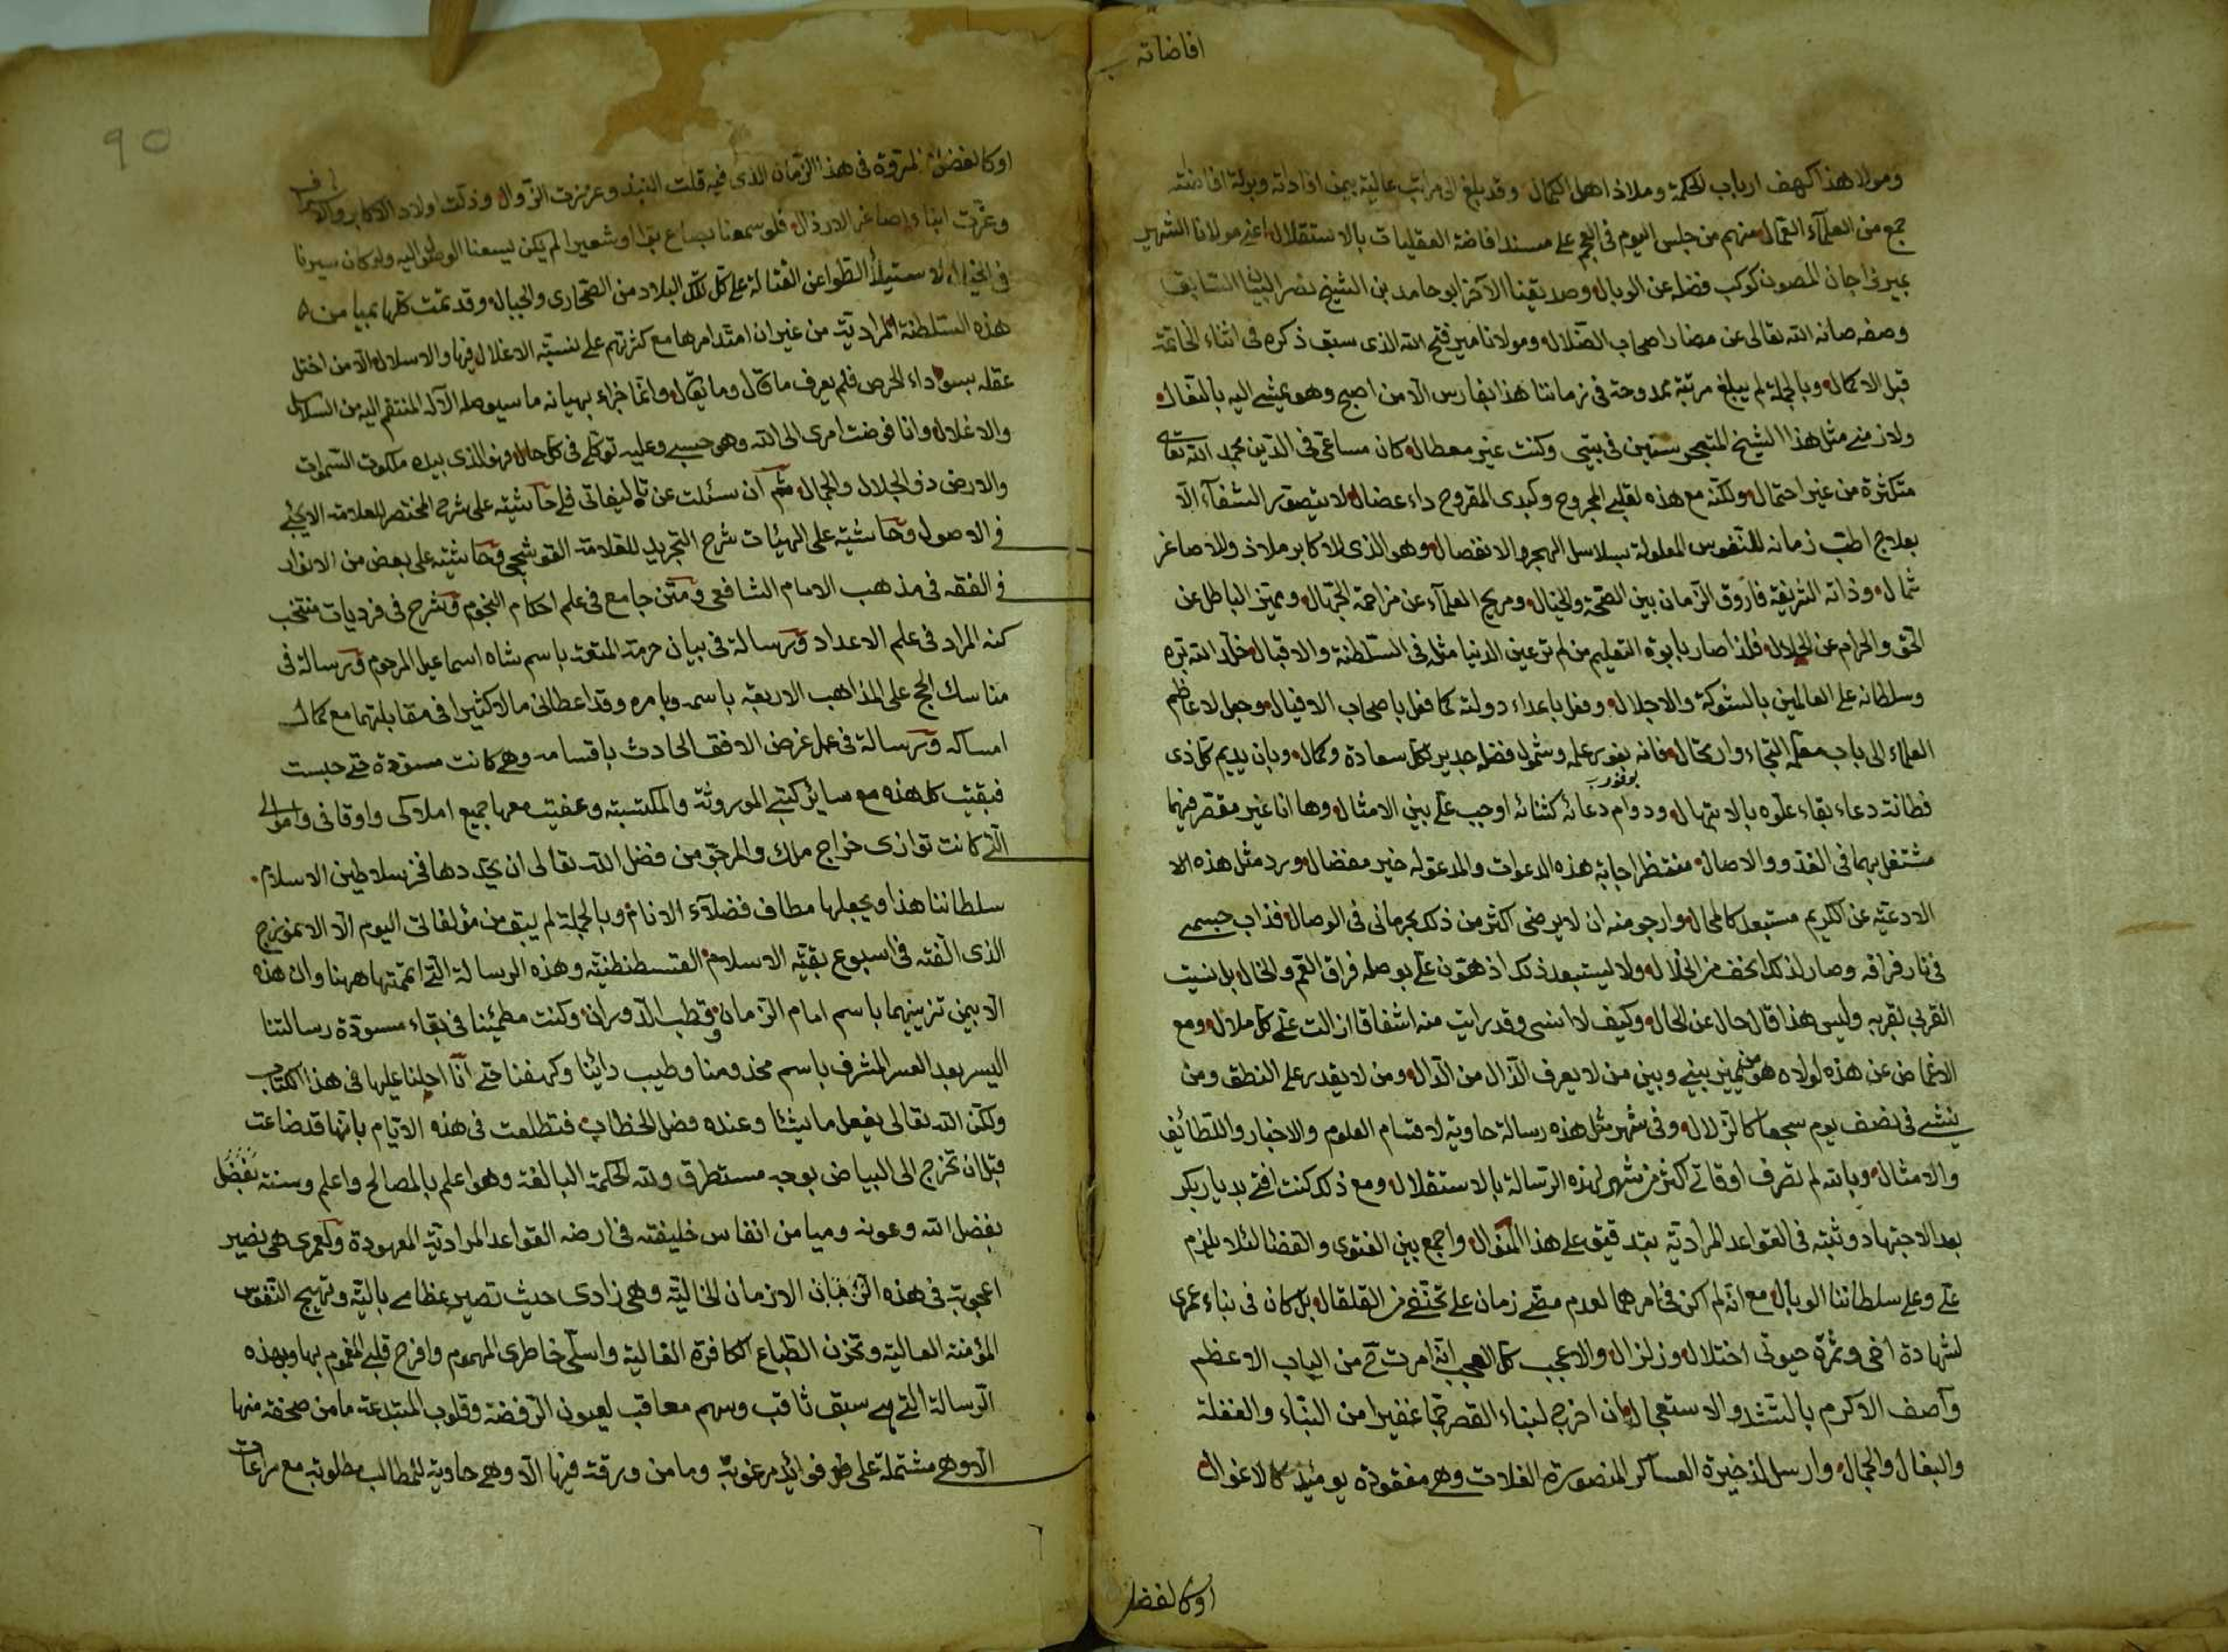 افاضاته
ومولانا هذا كهف ارباب الحكمة وملاذ اهل الكمال وقد بلغ الى مراتب عالية بيمن افاداته وبركة افاضته
جمع من العلمآء الكمال منهم من جلس اليوم في العجم على مسند افاضة العقليات بالاستقلال اعني مولانا الشهير
بميرزاجان المصون كوكب فضله عن الوبال وصديقنا الآخر ابو حامد بن الشيخ نصر البيضا السابق
وصفه صانه الله تعالى عن مضار اصحاب الضلال ومولانا مير فتح الله الذي سبق ذكره في اثناء الخاتمة
قبل الاكمال وبالجملة لم يبلغ مرتبة ممدوحة في زماننا هذا بفارس الا من اصبح وهو يمشي اليه بالنعال
ولازمني مثل هذا الشيخ المتبحر سنين في بيتي وكنت غير معطال كان مساعي في الدين بحمد الله تعالى
متكثرة من غير احتمال ولكنه مع هذه لقلبي المجروح وكبدي المقروح داء عضال لا يتصور الشفآء الا
بعلاج اطب زمانه للنفوس المعلولة بسلاسل الهجر والانفصال وهو الذي للاكابر ملاذ وللاصاغر
ثمال وذاته الشريفة فاروق الزمان بين الصحة والخيال ومريح العلمآء عن مزاحمة الجهال ومميز الباطل عن
الحق والحرام عن الحلال فلذا صار بابوة التعليم من لم تر عين الدنيا مثله في السلطنة والاقبال خلد الله بره
وسلطانه على العالمين بالشوكة والاجلال وفعل باعداء دولته كما فعل باصحاب الافيال وجعل لاعاظم
العلماء الى باب معلمه التجاء وارتحال فانه بفور علمه وشمول فضله جدير بكل سعادة وكمال وبان يديم كل ذي
فطانة دعاء بقاء علوه بالابتهال ودوام دعائه كثنائه اوجب علي بين الامثال وها انا غير مقصر فيهما
مشتغل بهما في الغدو والاصال منتظر اجابة هذه الدعوات والمدعو له خير مفضال ورد مثل هذه الا
الادعية عن الكريم مستبعد كالمحال وارجو منه ان لا يرضى اكثر من ذلك بحرماني في الوصال فذاب جسمي
في نار فراقه وصار لذلك انحف من الخلال ولا ليستبعد ذلك اذ هون علي بوصله فراق العم والخال بل نسيت
القربى لقربه وليس هذا قال حال عن الحال وكيف لا انسى وقد رايت منه اشفاقا ازالت عني كل ملال ومع
الاغماض عن هذه لولاه هو من يميز بيني وبين من لا يعرف الذال من الدال ومن لا يقدر على النطق ومن
ينشئ في نصف يوم سجعا كالزلال وفي شهر مثل هذه رسالة حاوية لاقسام العلوم والاخبار واللطائف
والامثال وبالله لم تصرف اوقاتي اكثر من شهر لهذه الرسالة بالاستقلال ومع ذلك كنت افتي بديار بكر
بعد الاجتهاد وثبته في القواعد المرادية بتدقيق على هذا المنوال واجمع بين الفتوى والقضا لئلا يلزم
علي وعلى سلطاننا الوبال مع انه لم اكن في امرهما لعدم مضي زمان على تخنفي من القلقال بل كان في بناء عمري
لشهادة اخي وثمرة حيوتي اختلال وزلزال والاعجب كل العجب انه امرت ح من الباب الاعظم
وآصف الاكرم بالتشدد والاستعجال بان اخرج لبناء القصر جما غفيرا من البناء والفعلة
والبغال والجمال وارسل لذخيرة العساكر المنصورة الغلات وهي مفقودة يومئذ كالاغوال
اوكالفضل
90
اوكالفضل والمروة في هذا الزمان الذي فيه قلت البنيد وعززت الزوال وذلت اولاد الاكابر والاشراف
وعزت ابناء اصاغر الارذال فلو سمعنا بصاع بر او شعير لم يكن ليسعنا الوصول اليه ولو كان سيرنا
في الخيال لاستيلآء الطواعن القتالة على كل تلك البلاد من الصحارى والجبال وقد تمت كلها بميامن
هذه السلطنة المرادية من غير ان امتد امرها مع كثرتهم على نسبة الاغلال فيها والاسلال الا من اختل
عقله بسوداء الحرص فلم يعرف ما قال وما يقال وانما جزاء بهيانه ما سيوصله الآله المنتقم اليه من السلاسل
والاغلال وانا فوضت امري الى الله وهو حسبي وعليه توكلي في كل حال فهو الذي بيده ملكوت السموات
والارض ذو الجلال والجمال ثم ان سئلت عن تاليفاتي فلي حاشية على شرح المختصر للعلامة الايجي
في الاصول وحاشية على الهيئات شرح التجريد للعلامة القوشجي وحاشية على بعض من الانوار
في الفقه في مذهب الامام الشافعي ومتن جامع في علم احكام النجوم وشرح في فرديات منتخب
كنه المراد في علم الاعداد ورسالة في بيان حرمة المتعة باسم شاه اسماعيل المرحوم ورسالة في
مناسك الحج على المذاهب الاربعة باسمه وبامره وقد اعطاني مالا كثيرا في مقابلتهما مع كمال
امساكه ورسالة في عمل عرض الافق الحادث باقسامه وهي كانت مسودة حتى حبست
فبقيت كل هذه مع سائر كتبي الموروثة والمكتسبة وعفيت معها جميع املاكي واوقافي واموالي
التي كانت توازي خراج ملك والمرجو من فضل الله تعالى ان يجددها فخر سلاطين الاسلام
سلطاننا هذا ويجعلها مطاف فضلآء الانام وبالجملة لم يبق من مؤلفاتي اليوم الا الانموذج
الذي الفته في اسبوع بقبة الاسلام القسطنطنية وهذه الرسالة التي اتممتها ههنا وان هذه
الا بيمن تزيينهما باسم امام الزمان وقطب الدوران وكنت مطمئنا في بقاء مسودة رسالتنا
اليسر بعد العسر المشرف باسم مخدومنا وطيب دائنا وكهفنا حتى انا احلنا عليها في هذا الكتاب
ولكن الله تعالى يفعل ما يشا وعنده فضل الخطاب فتطلعت في هذه الايام بانها قد ضاعت
قبل ان تخرج الى البياض بوجه مستطرق ولله الحكمة البالغة وهو اعلم بالمصالح واعلم وسنة بفضل
بفضل الله وعونه وميامن انفاس خليفته في ارضه القواعد المرادية المعهودة ولعمري هي نصير
اعجوبة في هذه الازمان الازمان الخالية وهي زادي حيث تصير عظامي بالية وتهيج النفوس
المؤمنة العالية وتحزن الطباع الكافرة القالية واسلي خاطري المهموم وافرح قلبي المغموم بها وبهذه
الرسالة التي هي سيف ثاقب وسهم معاقب لعيون الرفضة وقلوب المبتدعة ما من صحفة منها
الا وهي مشتملة على طرف فوائد مرغوبة وما من ورقة فيها الا وهي حاوية لمطالب مطلوبة مع مراعات